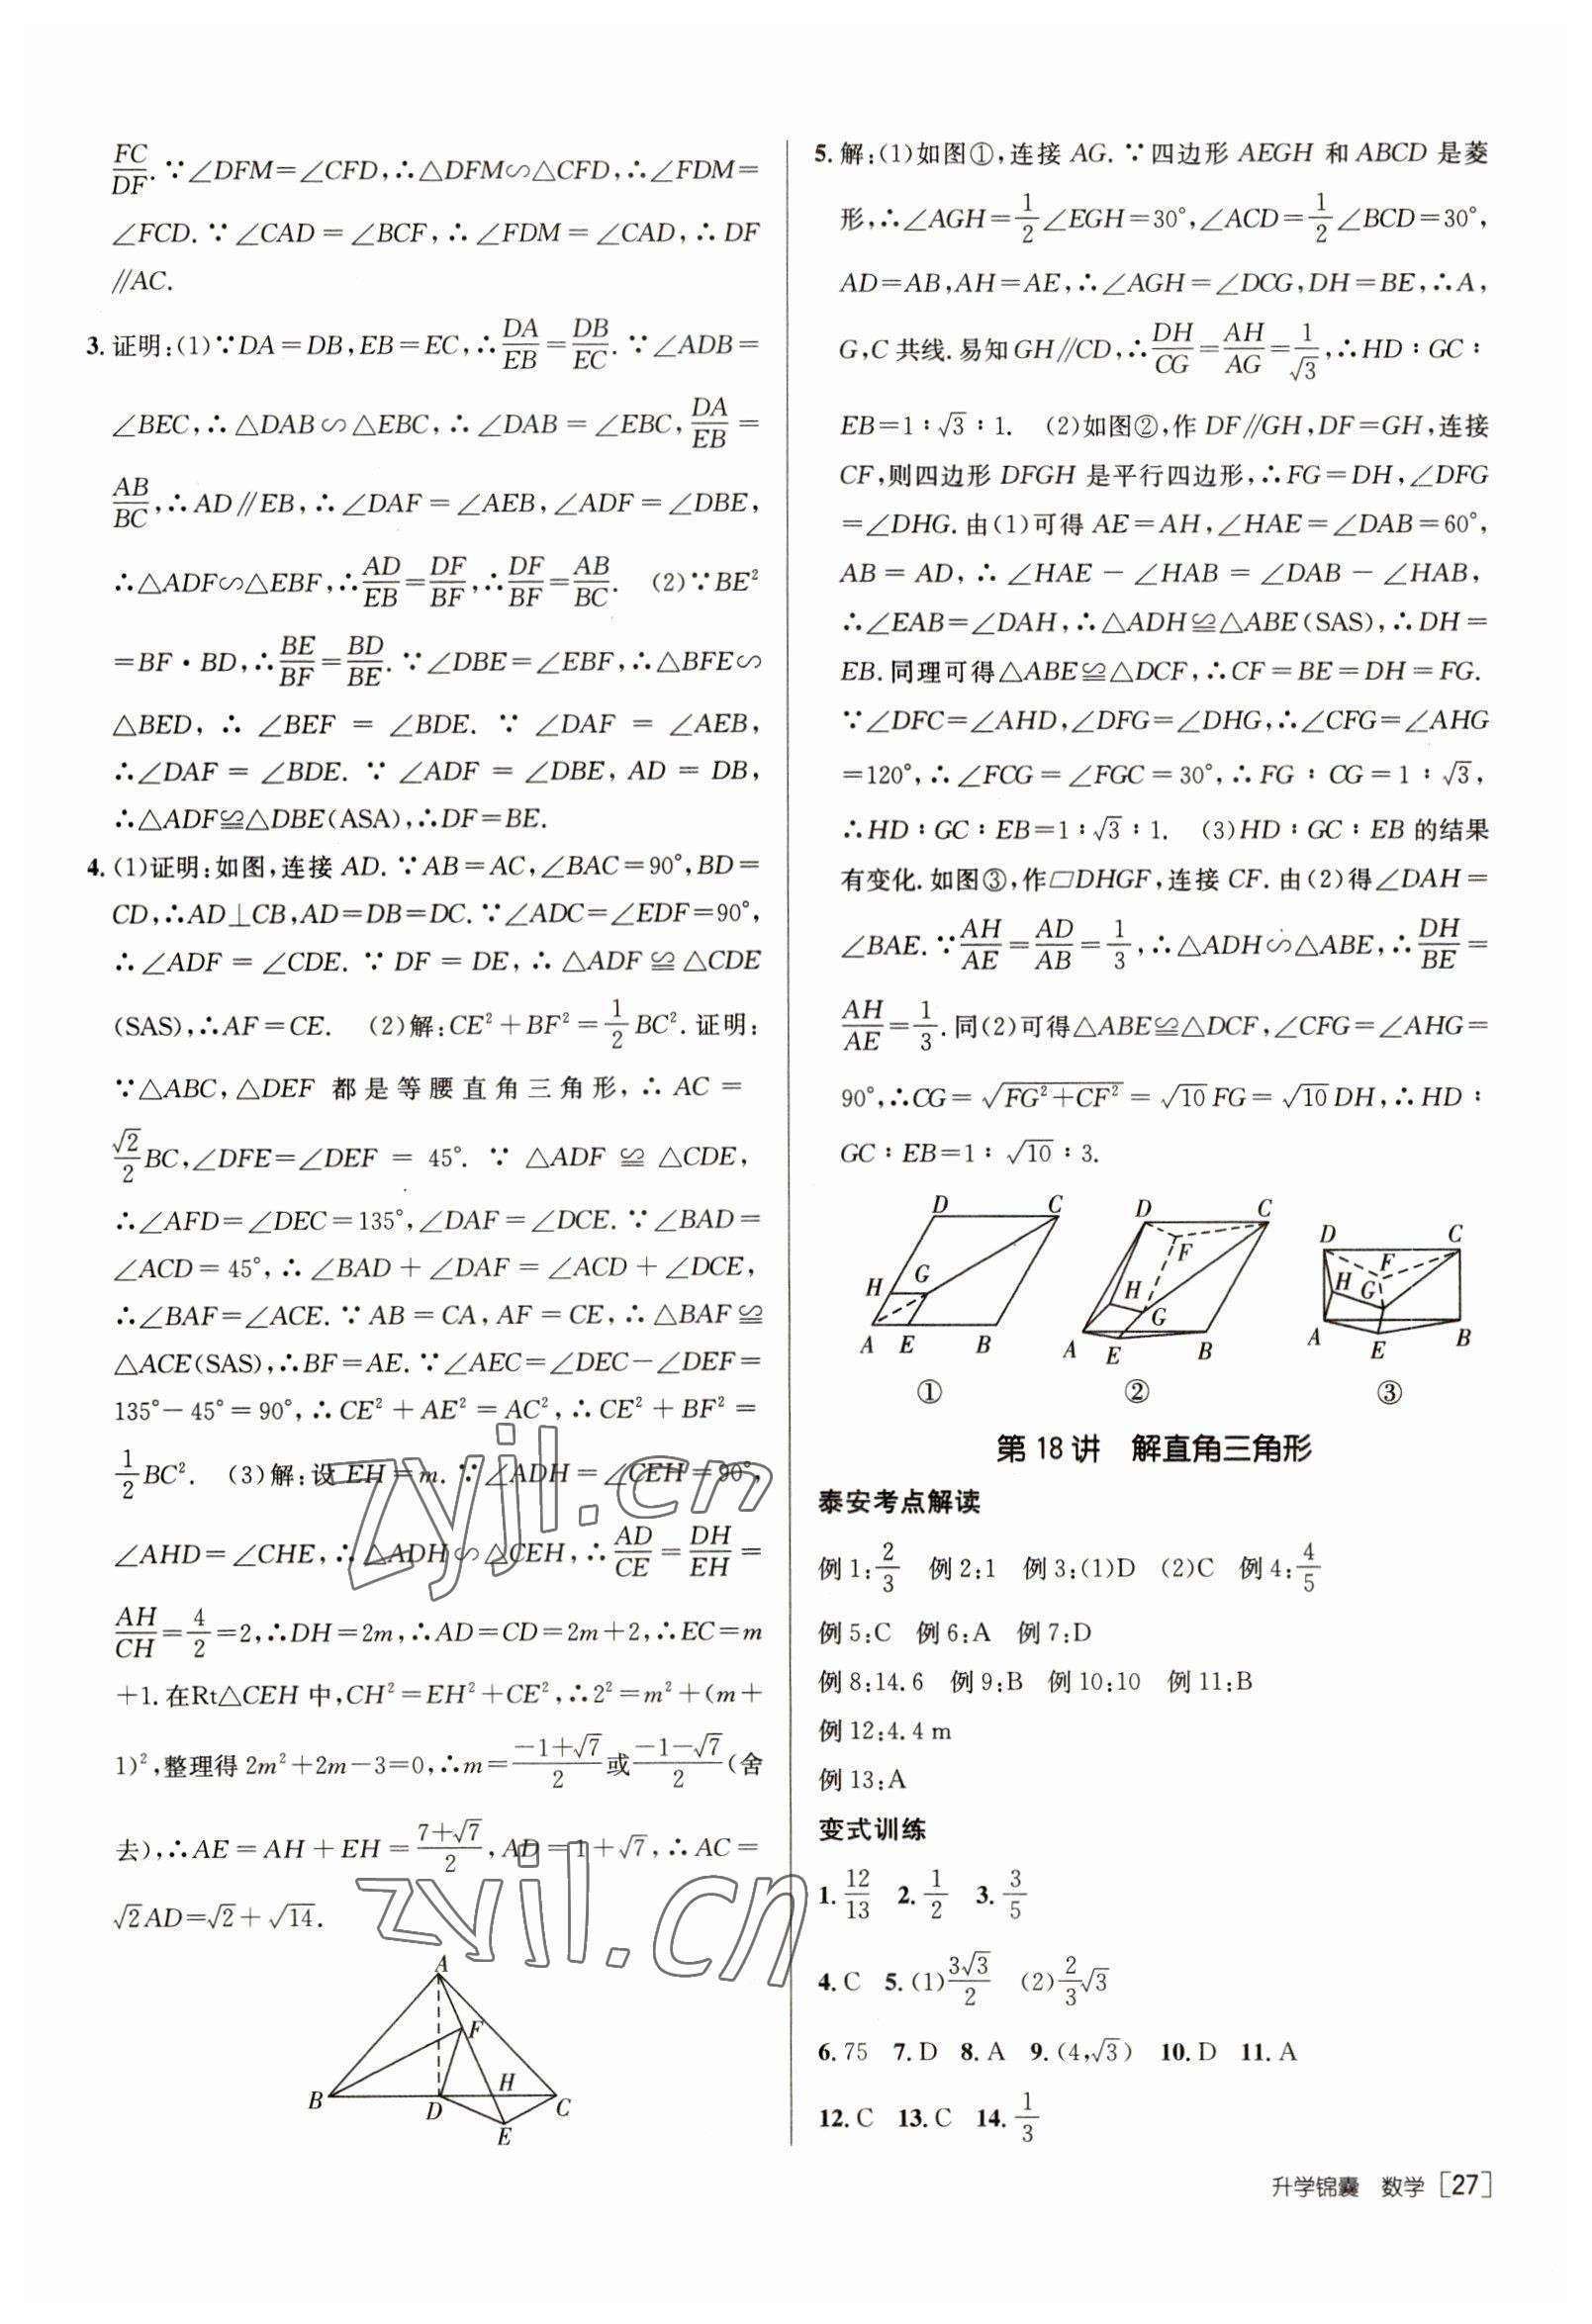 FC/DF.∵∠DFM=∠CFD,∴△DFM∽△CFD,∴∠FDM=
∠FCD.∵∠CAD=∠BCF,∴∠FDM=∠CAD,∴DF
∥AC.
3.证明:(1)∵DA=DB,EB=EC,∴DA/EB=DB/EC.∵∠ADB=
∠BEC,∴△DAB∽△EBC,∴∠DAB=∠EBC,DA/EB=
AB/BC,∴AD∥EB,∴∠DAF=∠AEB,∠ADF=∠DBE,
∴△ADF∽△EBF,∴AD/EB=DF/BF,∴DF/BF=AB/BC. (2)∵BE²
=BF·BD,∴BE/BF=BD/BE.∵∠DBE=∠EBF,∴△BFE∽
△BED,∴∠BEF=∠BDE.∵∠DAF=∠AEB,
∴∠DAF=∠BDE.∵∠ADF=∠DBE,AD=DB,
∴△ADF≌△DBE(ASA),∴DF=BE.
4.(1)证明:如图,连接AD.∵AB=AC,∠BAC=90°,BD=
CD,∴AD⊥CB,AD=DB=DC.∵∠ADC=∠EDF=90°,
∴∠ADF=∠CDE.∵DF=DE,∴△ADF≌△CDE
(SAS),∴AF=CE. (2)解:CE²+BF²=1/2BC².证明:
∵△ABC,△DEF都是等腰直角三角形,∴AC=
√2/2BC,∠DFE=∠DEF=45°.∵△ADF≌△CDE,
∴∠AFD=∠DEC=135°,∠DAF=∠DCE.∵∠BAD=
∠ACD=45°,∴∠BAD+∠DAF=∠ACD+∠DCE,
∴∠BAF=∠ACE.∵AB=CA,AF=CE,∴△BAF≌
△ACE(SAS),∴BF=AE.∵∠AEC=∠DEC-∠DEF=
135°-45°=90°,∴CE²+AE²=AC²,∴CE²+BF²=
1/2BC². (3)解:设EH=m.∵∠ADH=∠CEH=90°,
∠AHD=∠CHE,∴△ADH∽△CEH,∴AD/CE=DH/EH=
AH/CH=4/2=2,∴DH=2m,∴AD=CD=2m+2,∴EC=m
+1.在Rt△CEH中,CH²=EH²+CE²,∴2²=m²+(m+
1)²,整理得2m²+2m-3=0,∴m=(-1+√7)/2或(-1-√7)/2(舍
去),∴AE=AH+EH=(7+√7)/2,AD=1+√7,∴AC=
√2AD=√2+√14.
A
F
H
B
D
C
E
zyjl.cn
zyjl.cn
5.解:(1)如图①,连接AG.∵四边形AEGH和ABCD是菱
形,∴∠AGH=1/2∠EGH=30°,∠ACD=1/2∠BCD=30°,
AD=AB,AH=AE,∴∠AGH=∠DCG,DH=BE,∴A,
G,C共线.易知GH∥CD,∴DH/CG=AH/AG=1/√3,∴HD∶GC∶
EB=1∶√3∶1. (2)如图②,作DF∥GH,DF=GH,连接
CF,则四边形DFGH是平行四边形,∴FG=DH,∠DFG
=∠DHG.由(1)可得AE=AH,∠HAE=∠DAB=60°,
AB=AD,∴∠HAE-∠HAB=∠DAB-∠HAB,
∴∠EAB=∠DAH,∴△ADH≌△ABE(SAS),∴DH=
EB.同理可得△ABE≌△DCF,∴CF=BE=DH=FG.
∵∠DFC=∠AHD,∠DFG=∠DHG,∴∠CFG=∠AHG
=120°,∴∠FCG=∠FGC=30°,∴FG∶CG=1∶√3,
∴HD∶GC∶EB=1∶√3∶1. (3)HD∶GC∶EB的结果
有变化.如图③,作▱DHGF,连接CF.由(2)得∠DAH=
∠BAE.∵AH/AE=AD/AB=1/3,∴△ADH∽△ABE,∴DH/BE=
AH/AE=1/3.同(2)可得△ABE≌△DCF,∠CFG=∠AHG=
90°,∴CG=√(FG²+CF²)=√10FG=√10DH,∴HD∶
GC∶EB=1∶√10∶3.
D C H G A E B
①
D C F H G A E B
②
D C F H G A E B
③
第18讲 解直角三角形
泰安考点解读
例1:2/3 例2:1 例3:(1)D (2)C 例4:4/5
例5:C 例6:A 例7:D
例8:14.6 例9:B 例10:10 例11:B
例12:4.4 m
例13:A
变式训练
1.12/13 2.1/2 3.3/5
4.C 5.(1)3√3/2 (2)2/3√3
6.75 7.D 8.A 9.(4,√3) 10.D 11.A
12.C 13.C 14.1/3
升学锦囊 数学 [27]